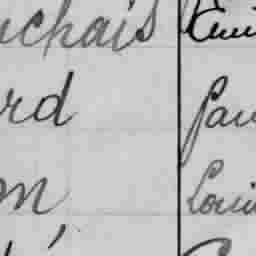 uchais Emi
rd Pau
on Loui